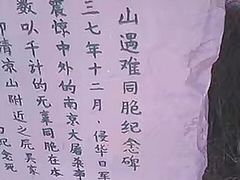 山遇难同胞纪念碑
三七年十二月，侵华日军
震惊中外的南京大屠杀事
数以千计的死案同胞在本
清凉山附近之死难
纪念死